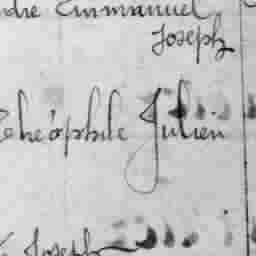 Emmanuel
Joseph
Théophile Julien
Joseph